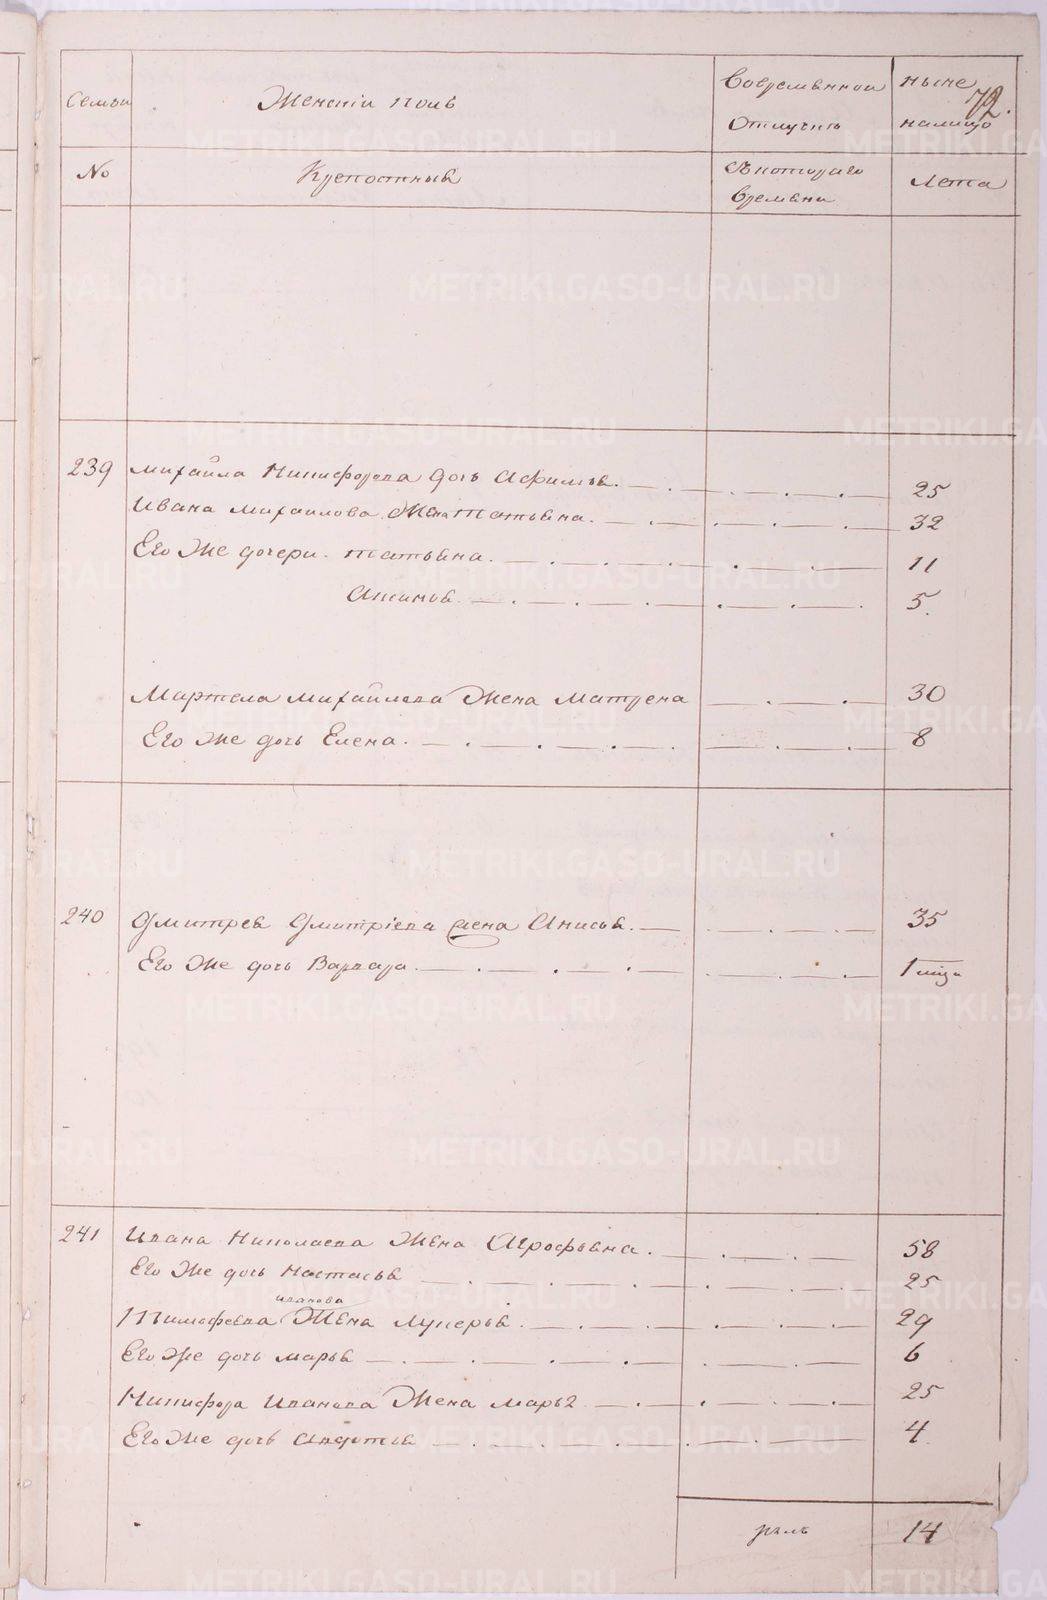 72.
Семьи Женскiи полъ Вовременной отлучкѣ ныне налицо
No Крепостныя Съкотораго времяни Лета
239 Михайла Никифорова дочь Афимья. 25
Ивана Михаилова жена Татьяна. 32
Его же дочери. Татьяна. 11
Акинья. 5.
Мартела Михайлова Жена Матрена 30
Его же дочь Елена. 8
240 Дмитрея Дмитрiева жена Анисья. 35
Его же дочь Варвара. 1 мцъ
241 Ивана Николаева Жена Агрофена. 58
Его же дочь Настасья 25
иванова
Тимофеева Жена Лукерья. 29
Его же дочь Марья 6
Никифора Иванова Жена Марья 25
Его же дочь Авдотья 4
14
METRIKI.GASO-URAL.RU